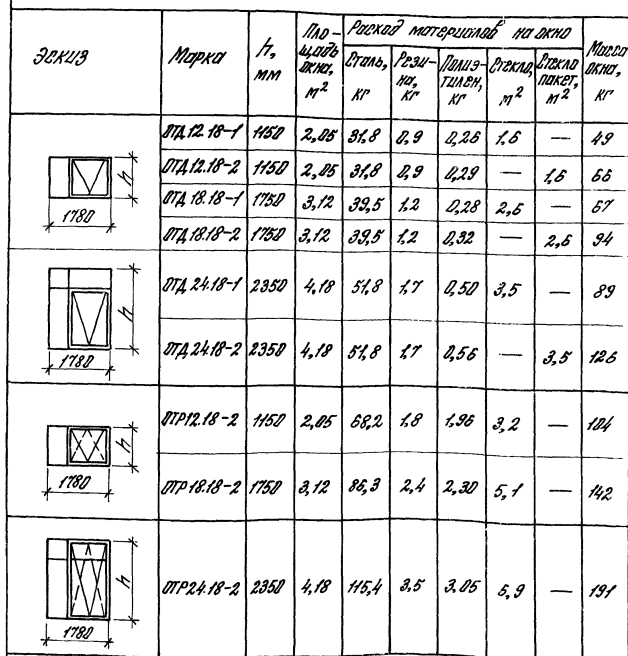 Эскиз Марка h, мм Пло-щадь окна, м² Расход материалов на окно Масса окна, кг
Сталь, кг Рези-на, кг Полиэ-тилен, кг Стекло, м² Стекло пакет, м²
ОТД 12.18-1 1150 2,05 31,8 0,9 0,26 1,6 — 49
ОТД 12.18-2 1150 2,05 31,8 0,9 0,29 — 1,6 66
ОТД 18.18-1 1750 3,12 39,5 1,2 0,28 2,6 — 67
ОТД 18.18-2 1750 3,12 39,5 1,2 0,32 — 2,6 94
h
1780
ОТД 24.18-1 2350 4,18 51,8 1,7 0,50 3,5 — 89
ОТД 24.18-2 2350 4,18 51,8 1,7 0,56 — 3,5 126
h
1780
ОТР12.18-2 1150 2,05 68,2 1,8 1,96 3,2 — 104
ОТР 18.18-2 1750 3,12 86,3 2,4 2,30 5,1 — 142
h
1780
ОТР24.18-2 2350 4,18 115,4 3,5 3,05 6,9 — 191
h
1780